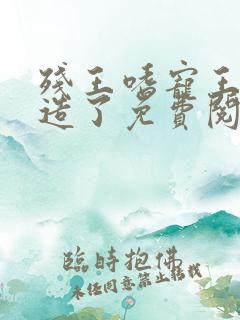 殘王嗜寵王
造了免費閱
臨時抱佛
未经同意禁止转载